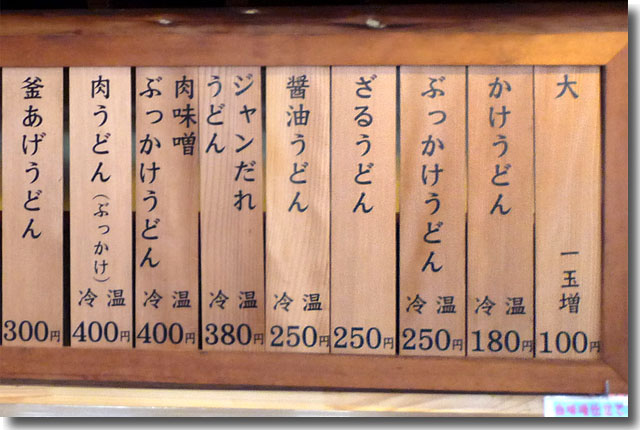 大 一玉増
100円
かけうどん
冷 温
180円
ぶっかけうどん
冷 温
250円
ざるうどん
250円
醤油うどん
冷 温
250円
ジャンだれ
うどん
冷 温
380円
肉味噌
ぶっかけうどん
冷 温
400円
肉うどん(ぶっかけ)
冷 温
400円
釜あげうどん
300円